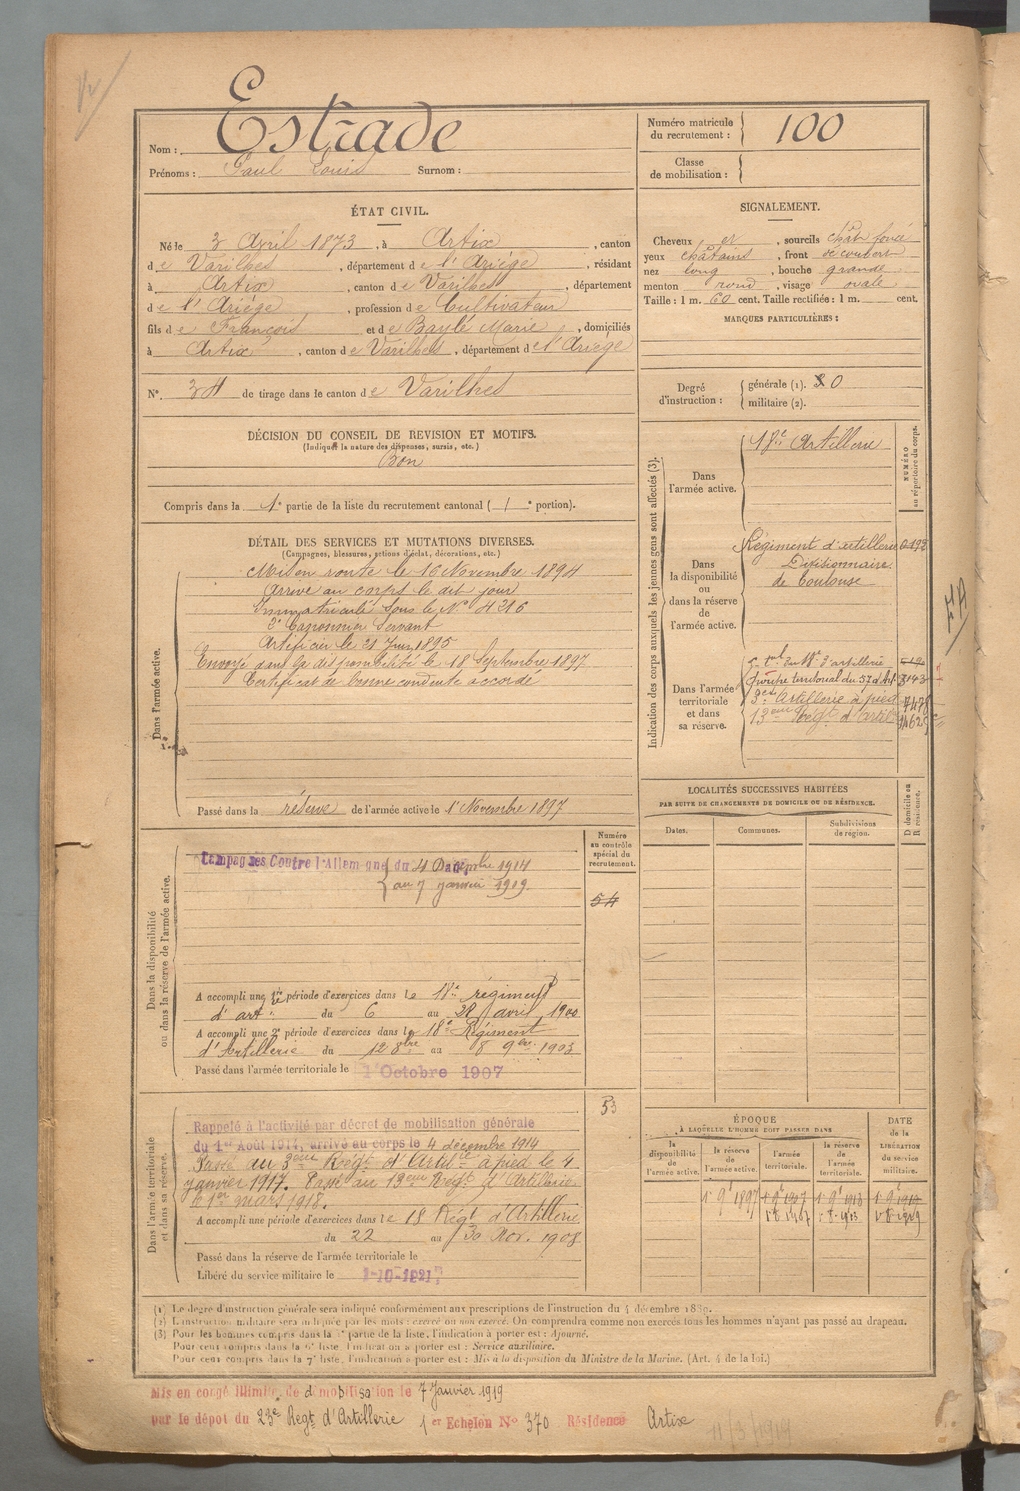 Estrade
Nom :
Prénoms : Paul Louis Surnom :
Numéro matricule du recrutement : 100
Classe de mobilisation :
ÉTAT CIVIL.
Né le 3 Avril 1873, à Artix, canton
de Varilhes, département de l'Ariège, résidant
à Artix, canton de Varilhes, département
de l'Ariège, profession de Cultivateur
fils de François et de Baylé Marie, domiciliés
à Artix, canton de Varilhes, département de l'Ariège
N° 34 de tirage dans le canton de Varilhes
SIGNALEMENT.
Cheveux et, sourcils chât foncé
yeux châtains, front découvert
nez long, bouche grande
menton rond, visage ovale
Taille : 1 m. 60 cent. Taille rectifiée : 1 m. cent.
MARQUES PARTICULIÈRES :
Degré d'instruction : générale (1). 0
militaire (2).
DÉCISION DU CONSEIL DE REVISION ET MOTIFS.
(Indiquer la nature des dispenses, sursis, etc.)
Bon
Compris dans la 1e partie de la liste du recrutement cantonal ( 1e portion).
DÉTAIL DES SERVICES ET MUTATIONS DIVERSES.
(Campagnes, blessures, actions d'éclat, décorations, etc.)
Dans l'armée active.
Mis en route le 16 Novembre 1894
Arrivé au corps le dit jour
Immatriculé sous le N° 4216
2e Canonnier Servant
Artificier le 21 Juin 1895
Envoyé dans la disponibilité le 18 Septembre 1897
Certificat de bonne conduite accordé
Passé dans la réserve de l'armée active le 1er Novembre 1897
Indication des corps auxquels les jeunes gens sont affectés (3).
NUMÉRO au répertoire du corps.
Dans l'armée active.
18e Artillerie
Dans la disponibilité ou dans la réserve de l'armée active.
Régiment d'artillerie
Divisionnaire
de Toulouse
Dans l'armée territoriale et dans sa réserve.
Groupe territorial du 57 d'Art 3143
3e Artillerie à pied 7478
13ème Régt d'artil
LOCALITÉS SUCCESSIVES HABITÉES
PAR SUITE DE CHANGEMENTS DE DOMICILE OU DE RÉSIDENCE.
D. domicile ou R. résidence.
Dates. Communes. Subdivisions de région.
Dans la disponibilité ou dans la réserve de l'armée active.
Numéro au contrôle spécial du recrutement.
54
Campagnes Contre l'Allemagne du 4 Décembre 1914
au 7 janvier 1919.
A accompli une 1re période d'exercices dans le 18e régiment
d'art. du 6 au 28 avril 1900
A accompli une 2e période d'exercices dans le 18e Régiment
d'Artillerie du 12 8bre au 8 9bre 1903
Passé dans l'armée territoriale le 1 Octobre 1907
Dans l'armée territoriale et dans sa réserve.
53
Rappelé à l'activité par décret de mobilisation générale
du 1er Août 1914, arrivé au corps le 4 décembre 1914
Passé au 3ème Régt d'Artie à pied le 4
janvier 1917. Passé au 13ème Régt d'Artillerie
le 1er mars 1918.
A accompli une période d'exercices dans le 18 Régt d'Artillerie
du 22 au 30 Nov. 1908
Passé dans la réserve de l'armée territoriale le
Libéré du service militaire le 1-10-1921
ÉPOQUE
À LAQUELLE L'HOMME DOIT PASSER DANS
DATE de la LIBÉRATION du service militaire.
la disponibilité de l'armée active. la réserve de l'armée active. l'armée territoriale. la réserve de l'armée territoriale.
(1) Le degré d'instruction générale sera indiqué conformément aux prescriptions de l'instruction du 4 décembre 1889.
(2) L'instruction militaire sera indiquée par les mots : exercé ou non exercé. On comprendra comme non exercés tous les hommes n'ayant pas passé au drapeau.
(3) Pour les hommes compris dans la 5e partie de la liste, l'indication à porter est : Ajourné.
Pour ceux compris dans la 6e liste, l'indication à porter est : Service auxiliaire.
Pour ceux compris dans la 7e liste, l'indication à porter est : Mis à la disposition du Ministre de la Marine. (Art. 4 de la loi.)
Mis en congé illimité de démobilisation le 7 Janvier 1919
par le dépôt du 23e Régt d'Artillerie 1er Echelon N° 370 Résidence Artix